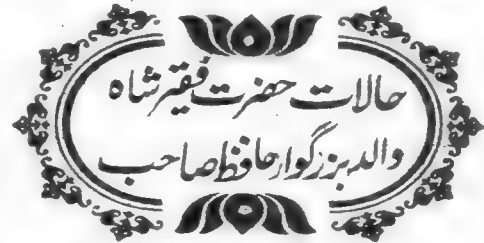 حالات حضرت فقیر شاہ
والد بزرگوار حافظ صاحب